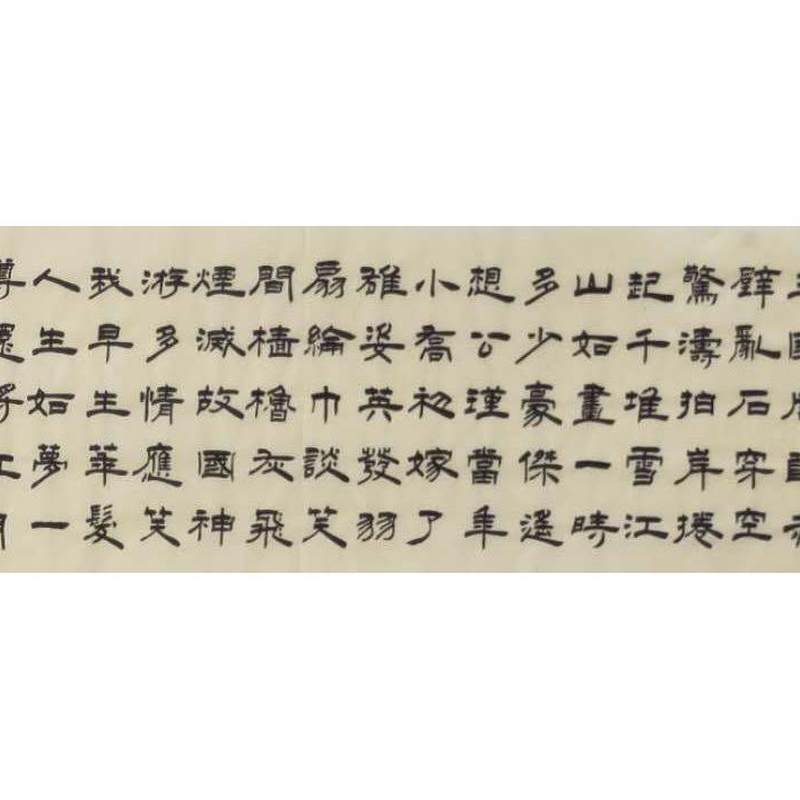 壁亂石穿空
驚濤拍岸捲
起千堆雪江
山如畫一時
多少豪傑遙
想公瑾當年
小喬初嫁了
雄姿英發羽
扇綸巾談笑
間檣櫓灰飛
煙滅故國神
游多情應笑
我早生華髮
人生如夢一